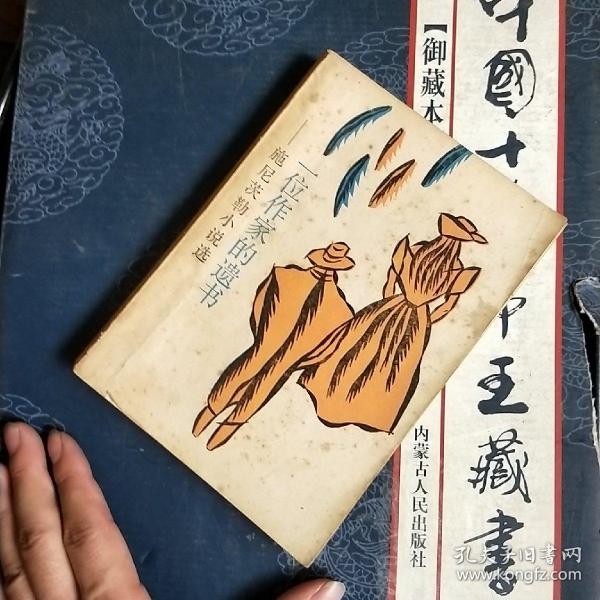 一位作家的遗书
——施尼茨勒小说选
【御藏本
中国十
帝王藏书
内蒙古人民出版社
孔夫子旧书网
www.kongfz.com